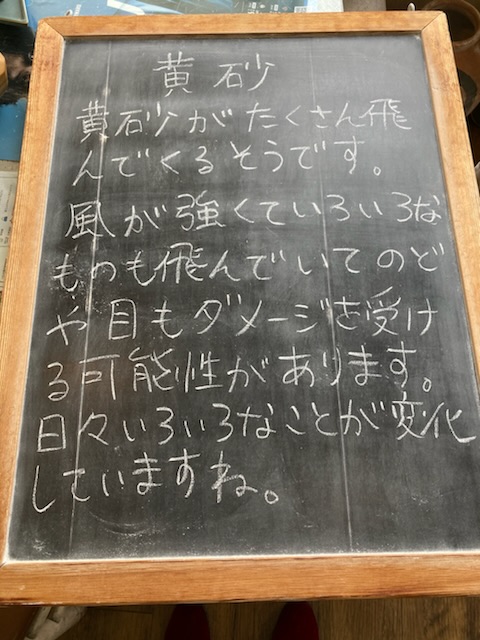 黄砂
黄砂がたくさん飛
んでくるそうです。
風が強くていろいろな
ものも飛んでいてのど
や目もダメージを受け
る可能性があります。
日々いろいろなことが変化
していますね。